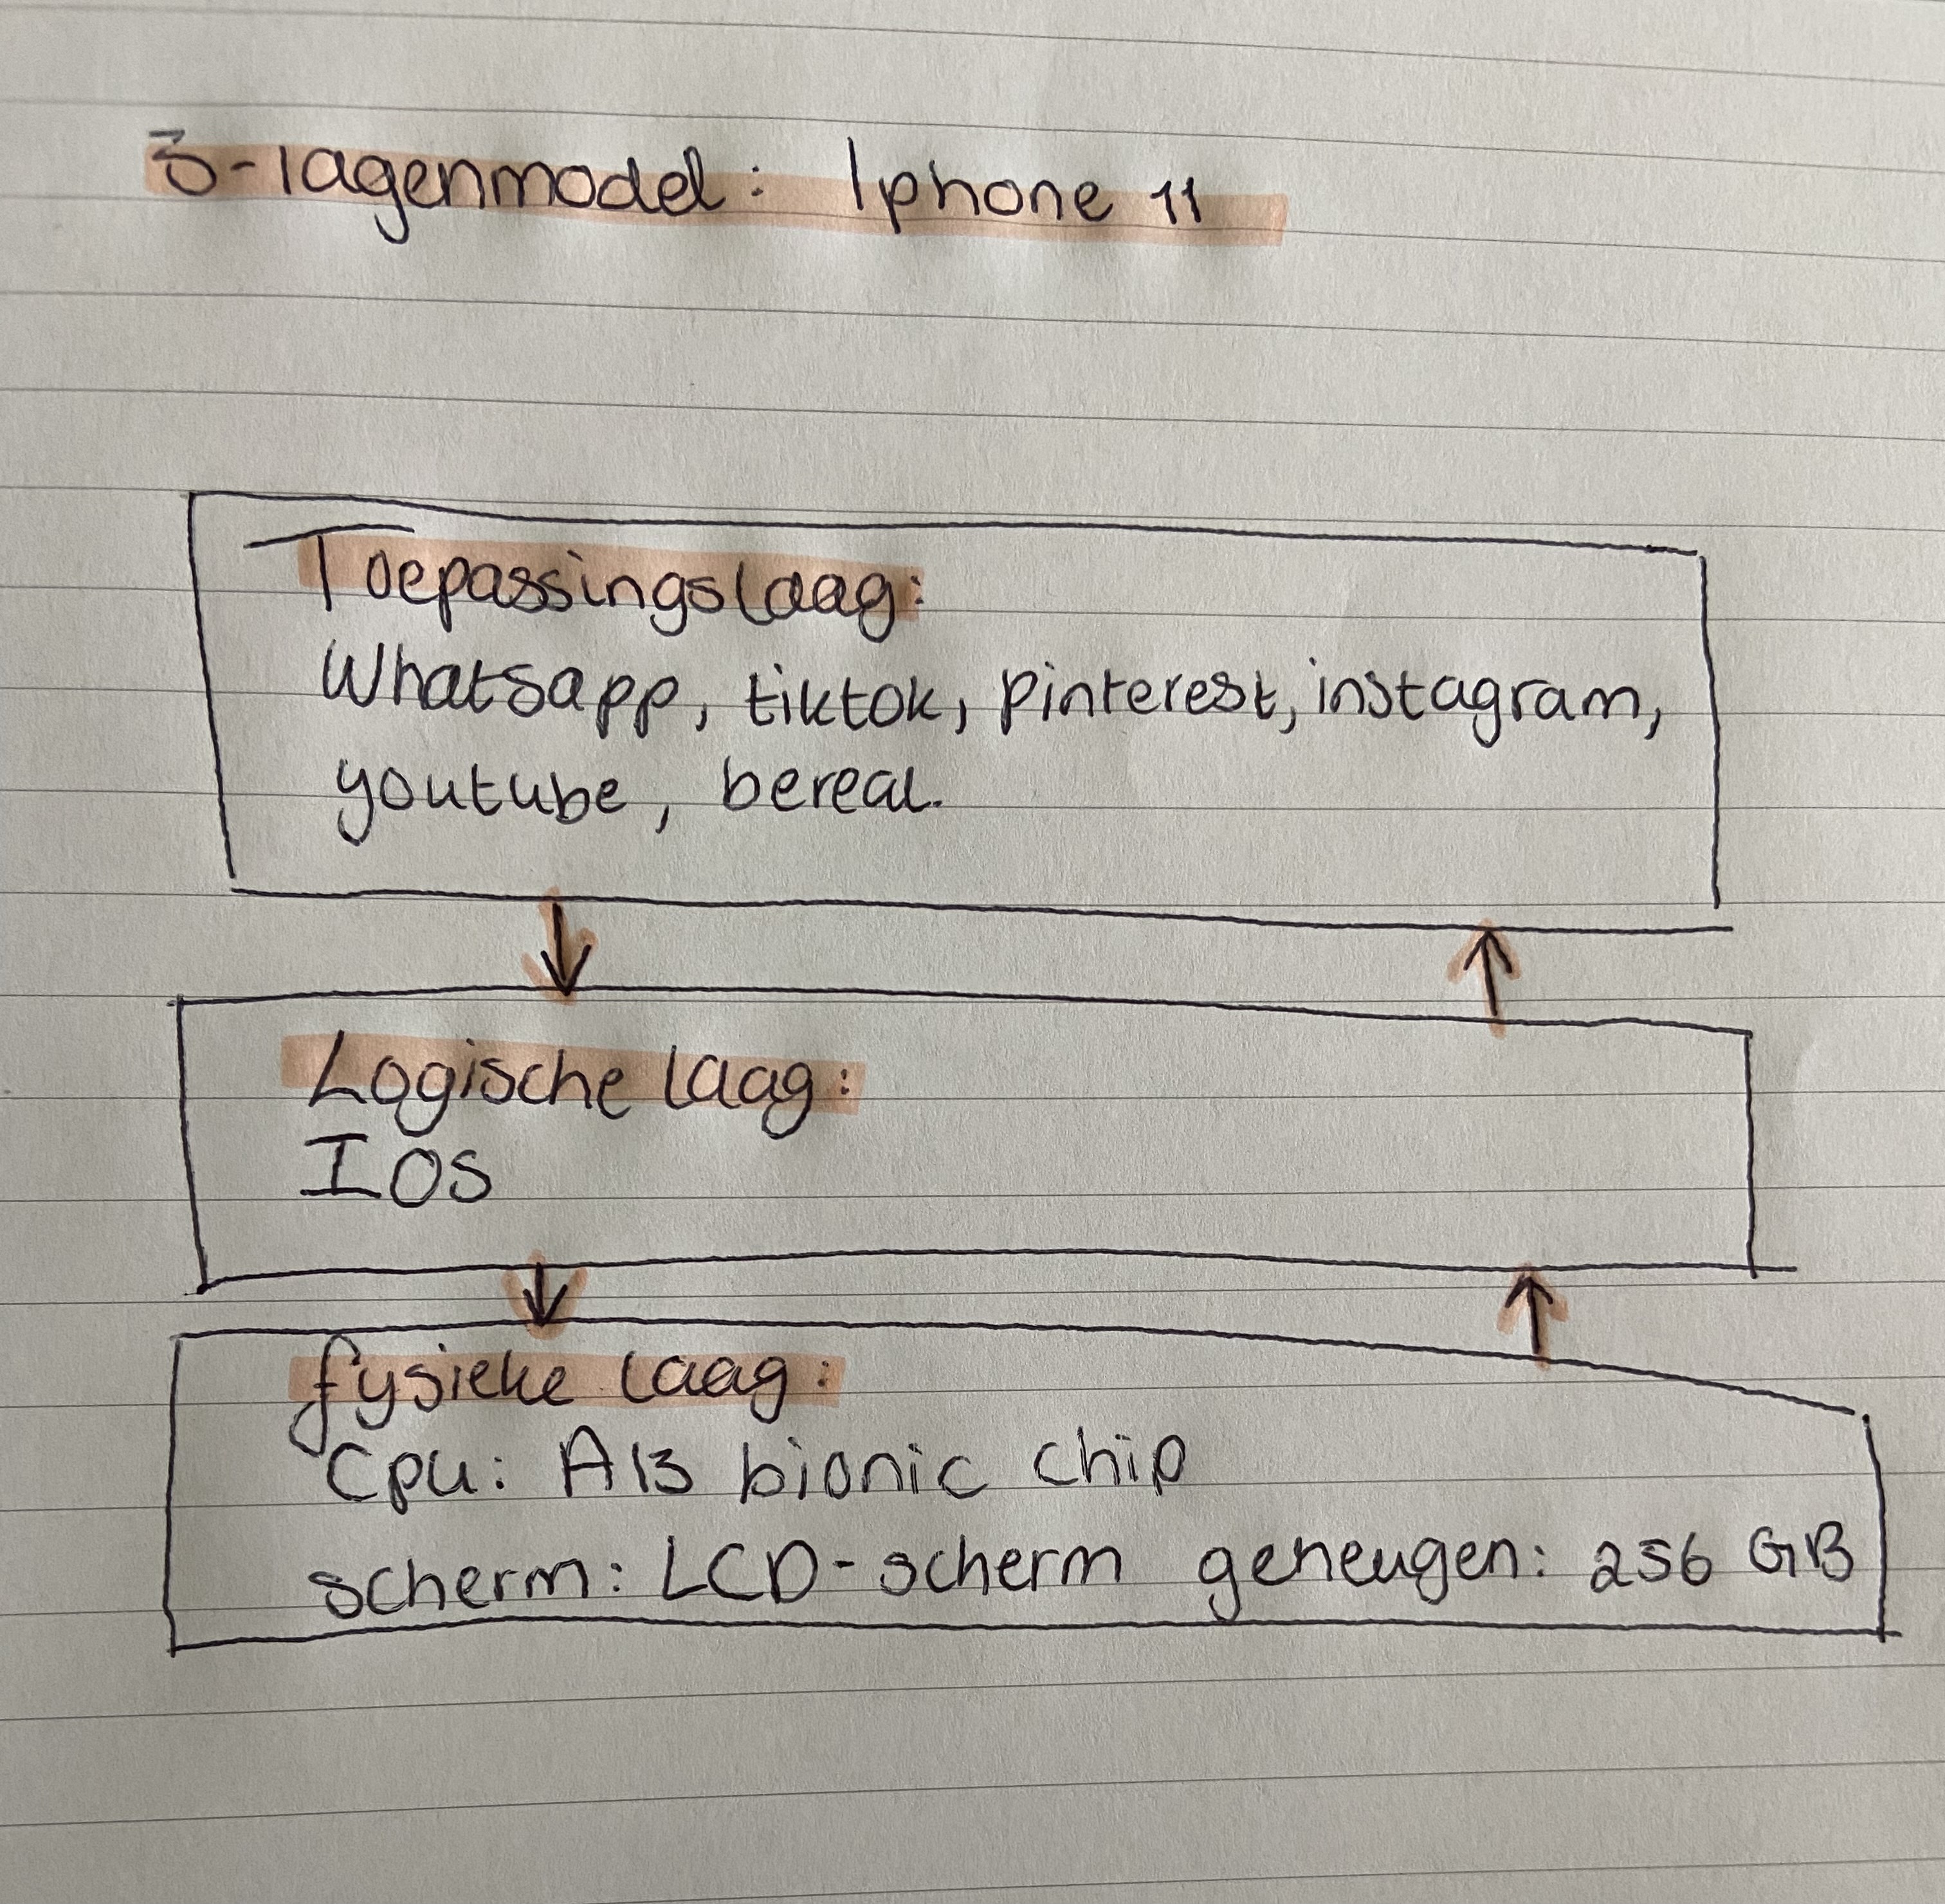 3-lagenmodel: Iphone 11
Toepassingslaag:
Whatsapp, tiktok, pinterest, instagram,
youtube, bereal.
Logische laag:
IOS
fysieke laag:
Cpu: A13 bionic chip
scherm: LCD-scherm geheugen: 256 GB